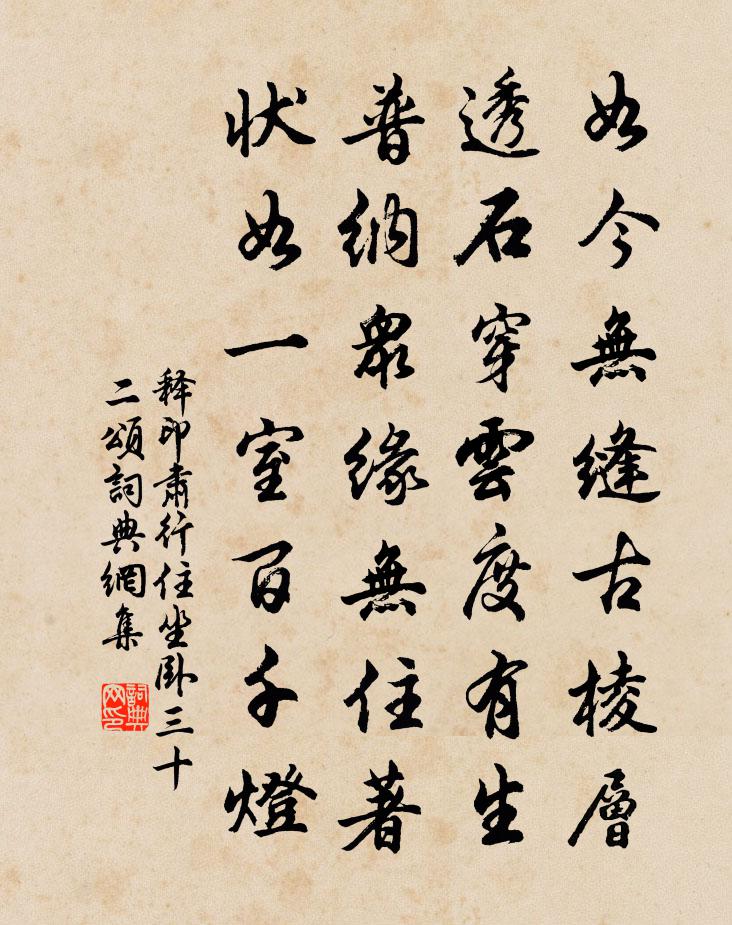 如今無縫古棱層
透石穿雲度有生
普納眾緣無住著
狀如一室百千燈
释印肃行住坐卧三十
二頌詞典網集
詞典网印